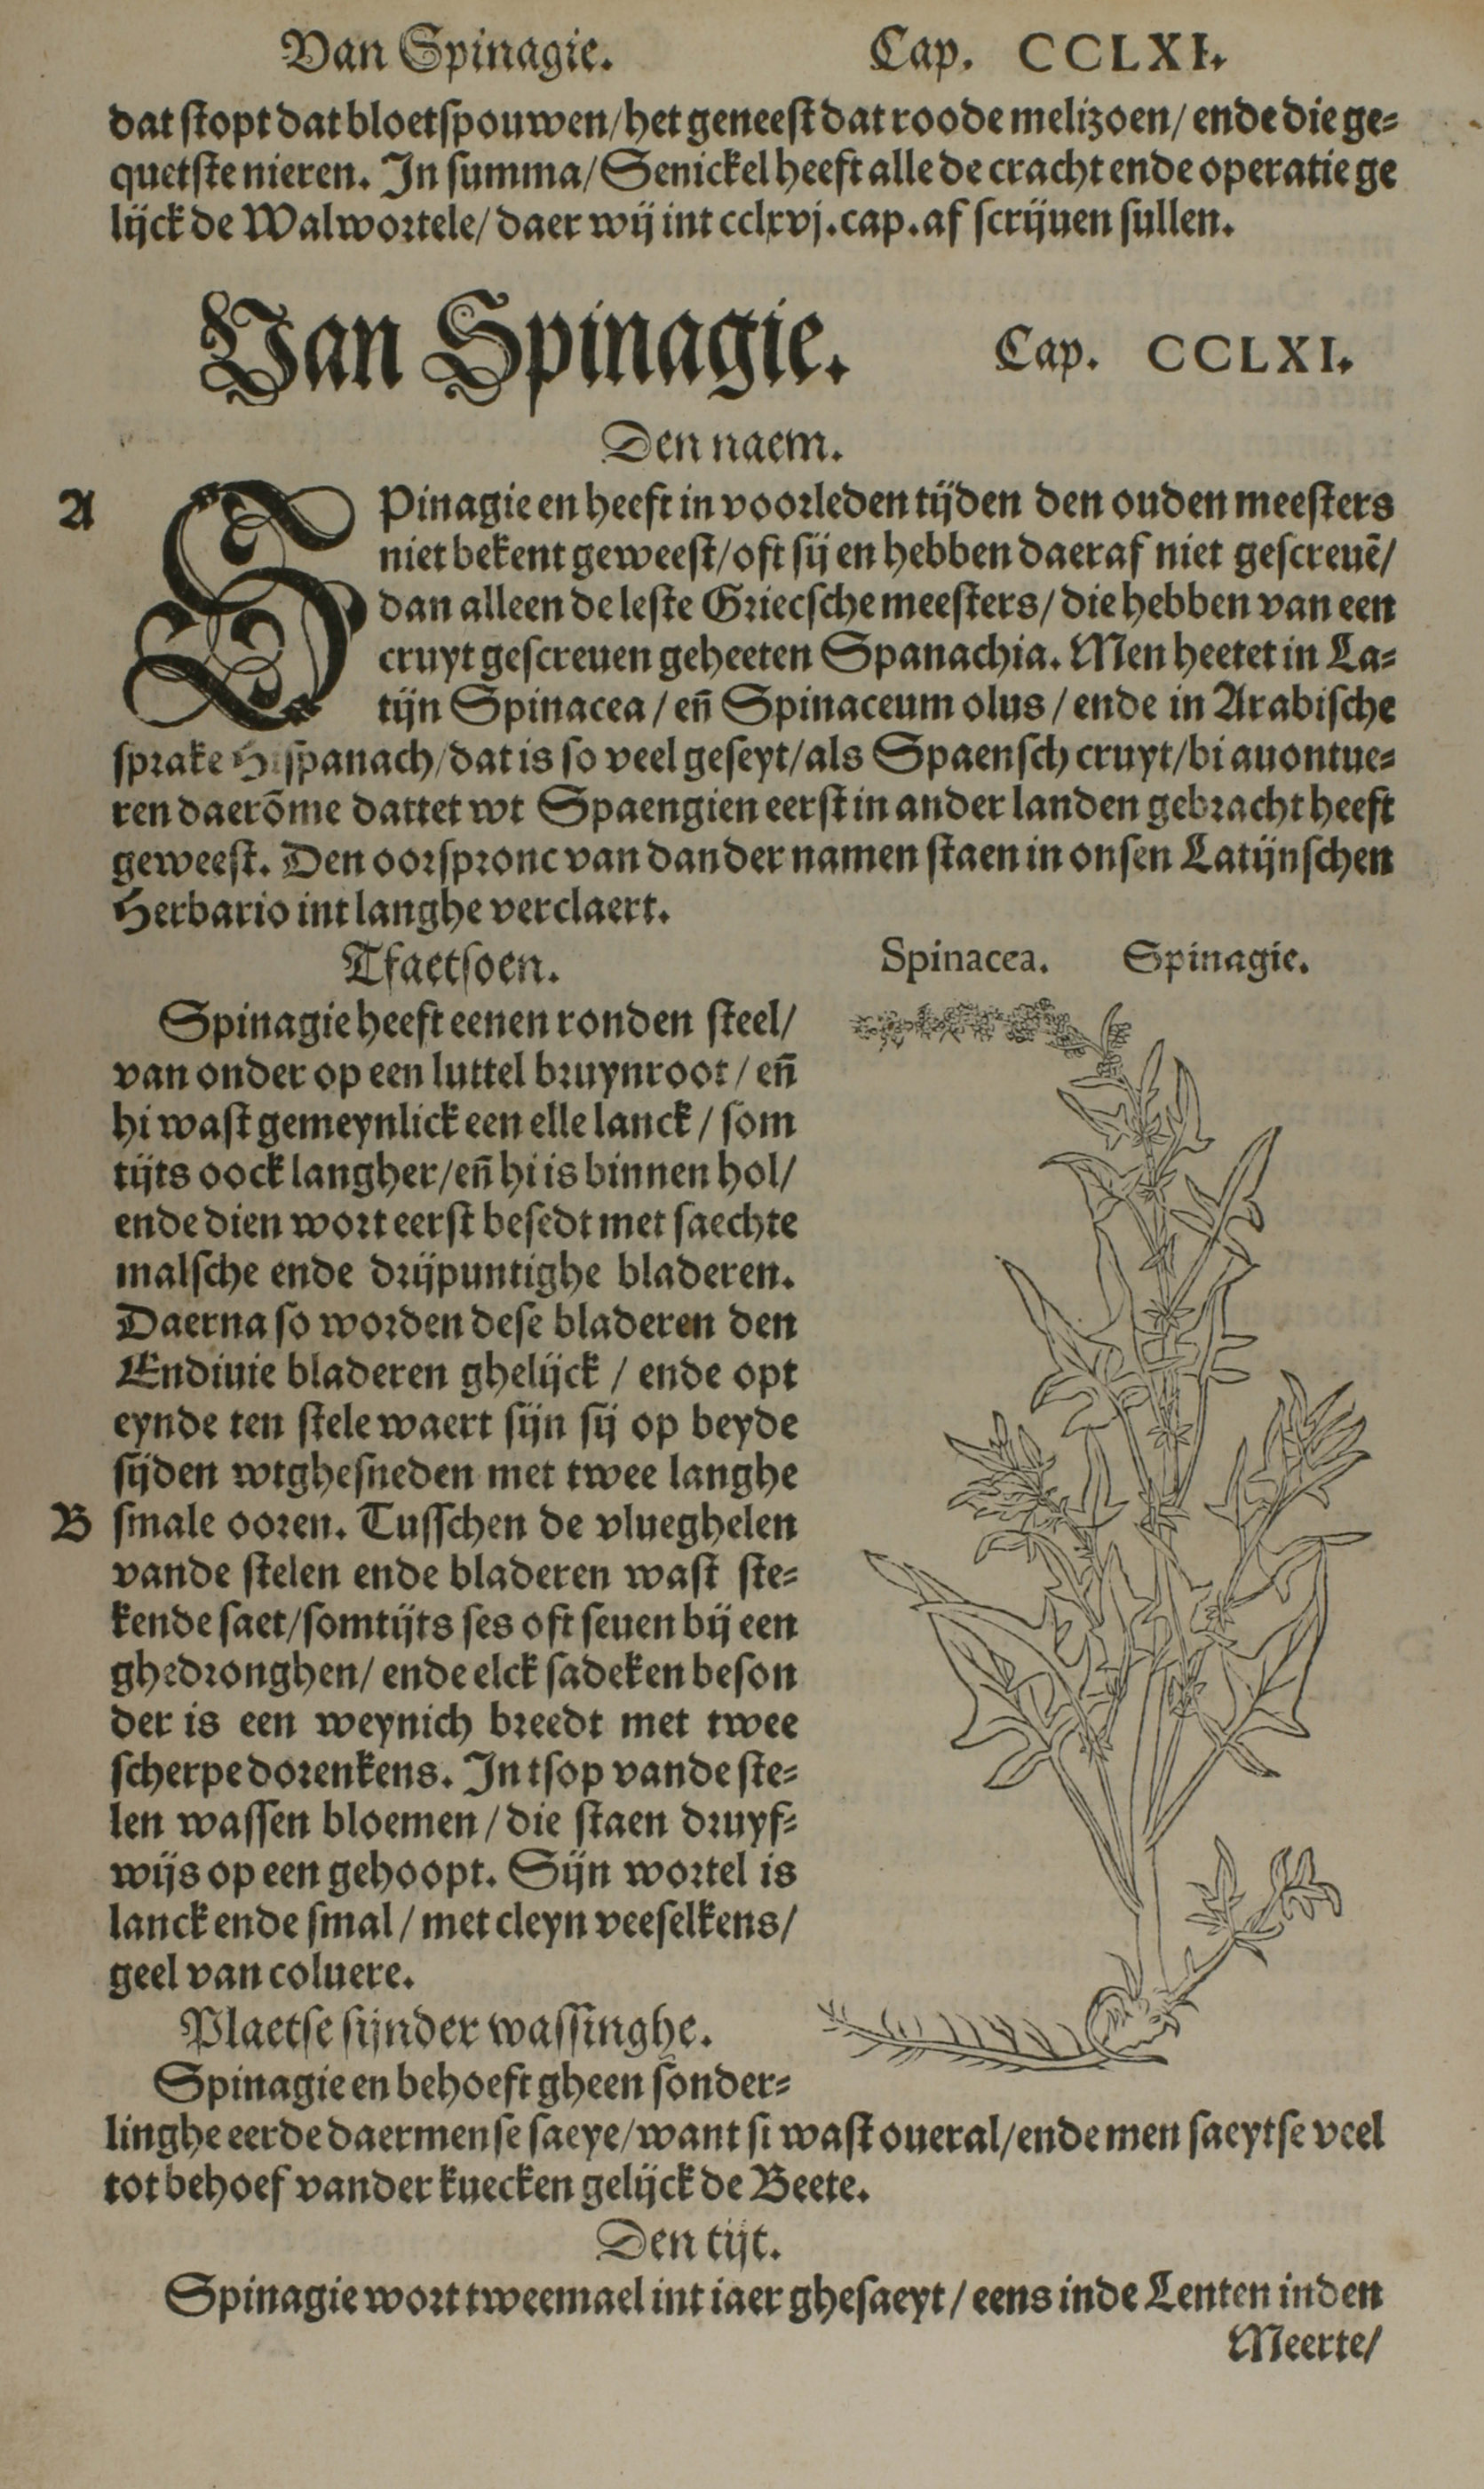 Van Spinagie. Cap. CCLXI.
dat stopt dat bloetspouwen/het geneest dat roode melizoen/ ende die ge-
quetste nieren. In summa/Senickel heeft alle de cracht ende operatie ge
lijck de Walwortele/ daer wij int cclxvj.cap.af scrijuen sullen.
Van Spinagie. Cap. CCLXI.
Den naem.
A SPinagie en heeft in voorleden tijden den ouden meesters
niet bekent geweest/oft sij en hebben daeraf niet gescreuē/
dan alleen de leste Griecsche meesters/ die hebben van een
cruyt gescreuen geheeten Spanachia. Men heetet in La-
tijn Spinacea / eñ Spinaceum olus / ende in Arabische
sprake Hispanach/dat is so veel geseyt/als Spaensch cruyt/bi auontue-
ren daerōme dattet wt Spaengien eerst in ander landen gebracht heeft
geweest. Den oorspronc van dander namen staen in onsen Latijnschen
Herbario int langhe verclaert.
Tfaetsoen.
Spinacea. Spinagie.
Spinagie heeft eenen ronden steel/
van onder op een luttel bruynroot / eñ
hi wast gemeynlick een elle lanck / som
tijts oock langher/eñ hi is binnen hol/
ende dien wort eerst besedt met saechte
malsche ende drijpuntighe bladeren.
Daerna so worden dese bladeren den
Endiuie bladeren ghelijck / ende opt
eynde ten stele waert sijn sij op beyde
sijden wtghesneden met twee langhe
B smale ooren. Tusschen de vlueghelen
vande stelen ende bladeren wast ste-
kende saet/somtijts ses oft seuen bij een
ghedronghen/ ende elck sadeken beson
der is een weynich breedt met twee
scherpe dorenkens. In tsop vande ste-
len wassen bloemen / die staen druyf-
wijs op een gehoopt. Sijn wortel is
lanck ende smal / met cleyn veeselkens/
geel van coluere.
Plaetse sijnder wassinghe.
Spinagie en behoeft gheen sonder-
linghe eerde daermen se saeye/want si wast oueral/ende men saeytse veel
tot behoef vander kuecken gelijck de Beete.
Den tijt.
Spinagie wort tweemael int iaer ghesaeyt / eens inde Lenten inden
Meerte/